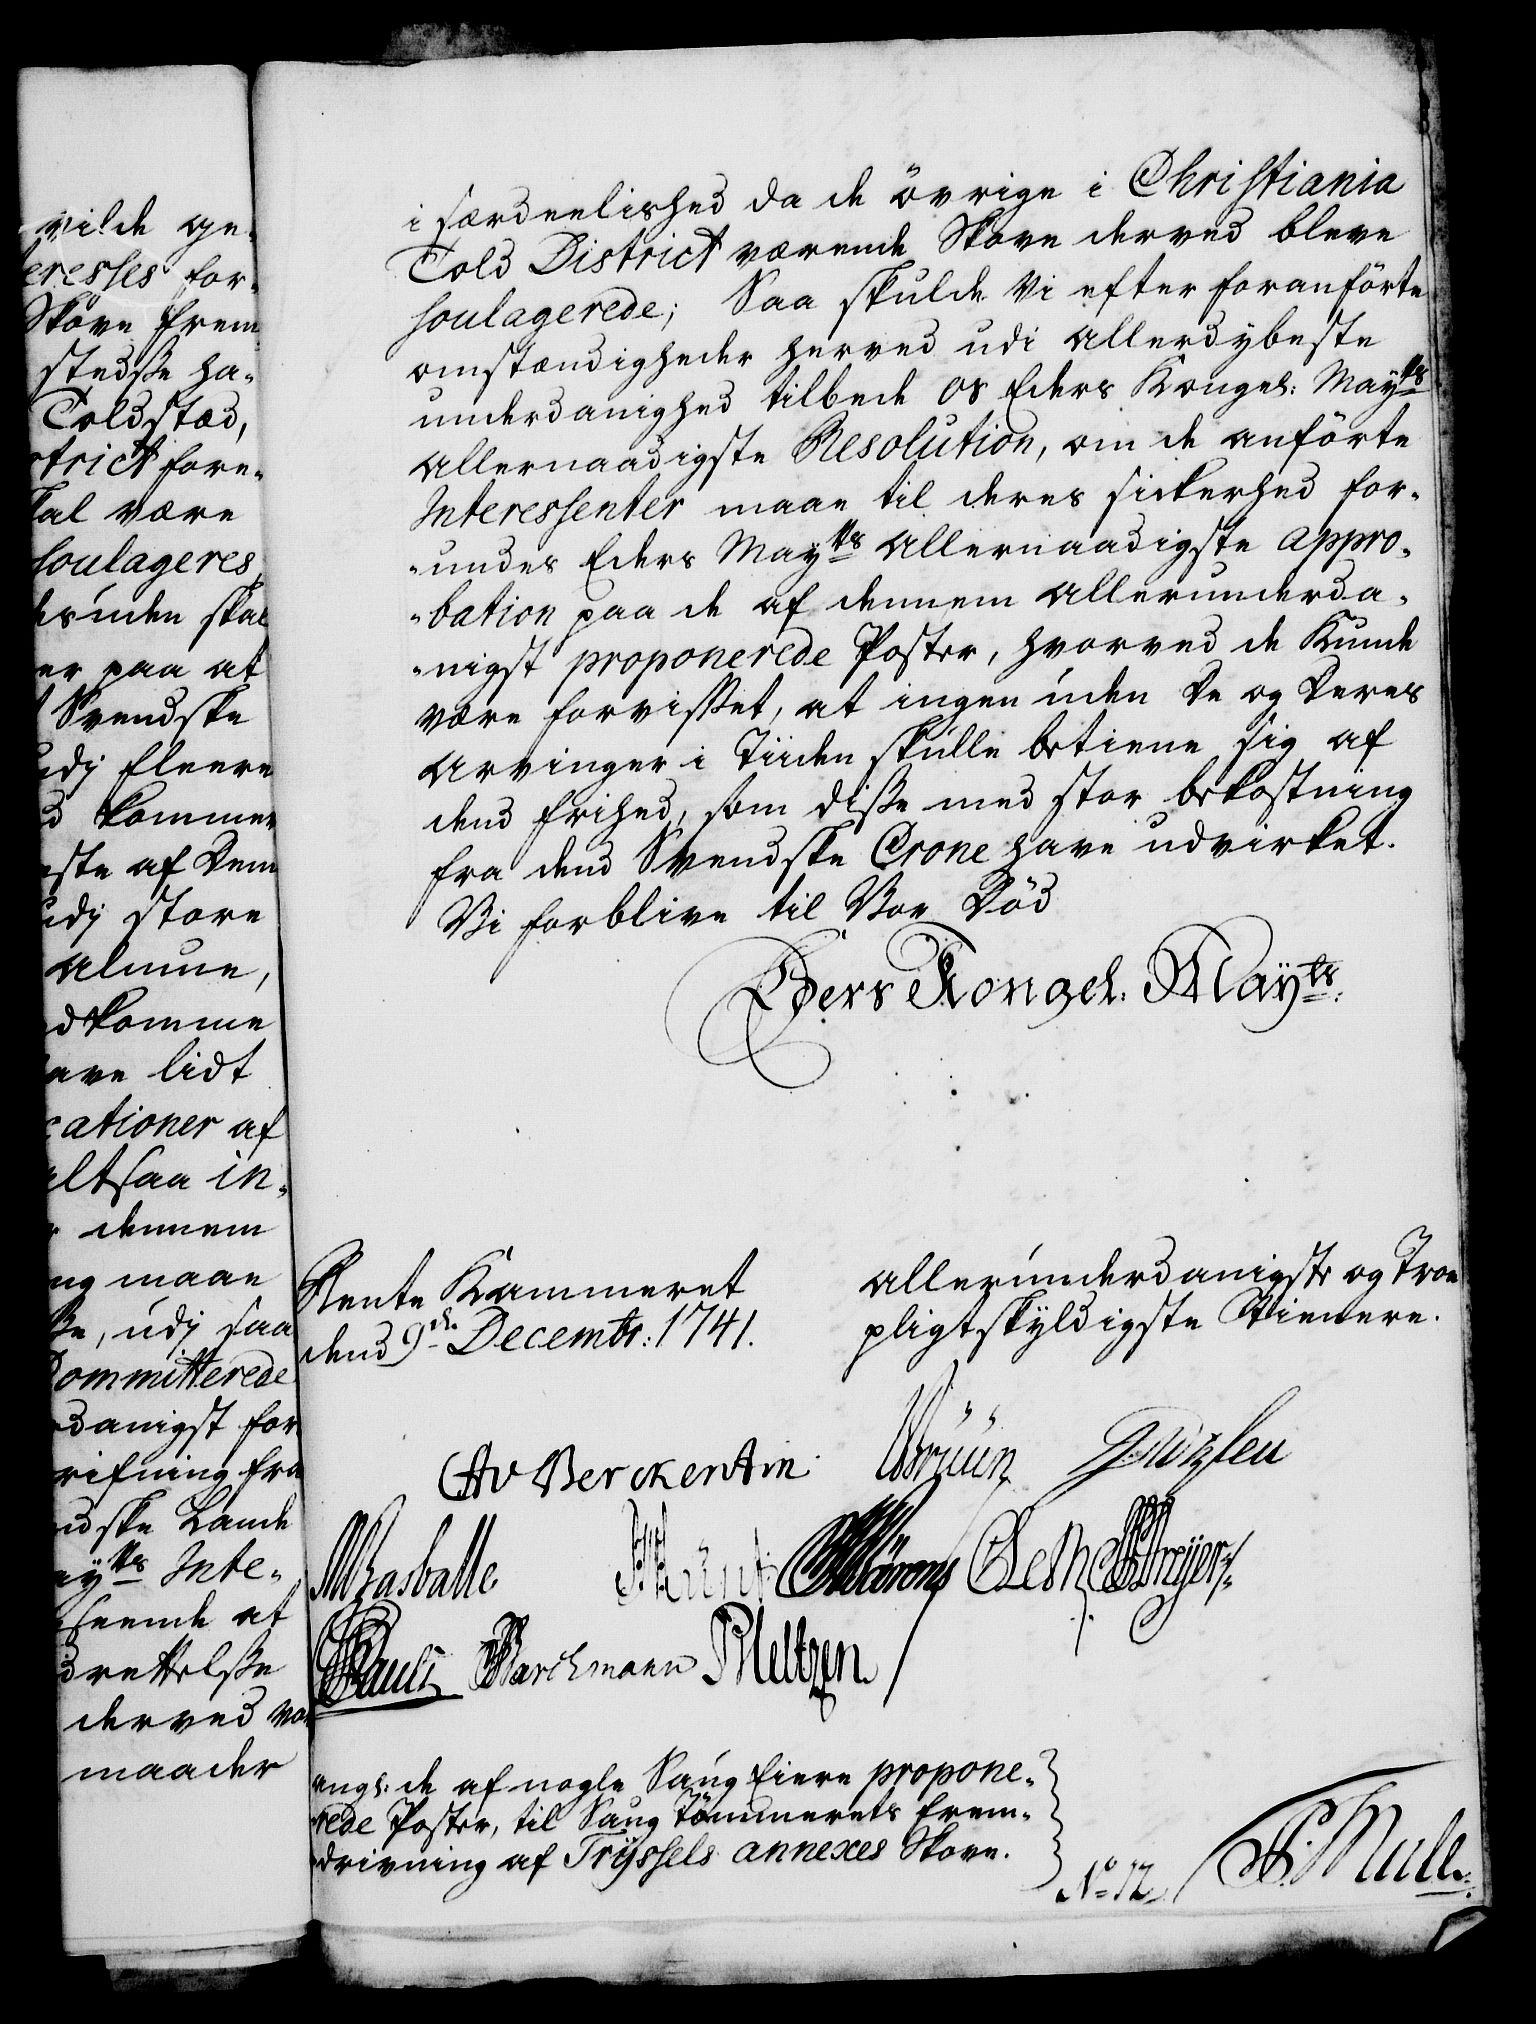 vilde ge-
eresses for-
Skove frem
stedsse ha-
Toldsted,
strict fore-
kal være
soulageres
des uden skal
er paa at
Svendske
udj fleere
d kommer
ste af dem
udj store
alune,
dkomme
ave lidt
cationer af
altsaa in-
dennem
ng maae
sse, udj saa
Committerede
danigst for
rifning fra
dske Lande
ayts Inte-
seende at
drettelsse
derved
maader
i særdeelished da de övrige i Christiania
Told District værende Skove derved bleve
soulagerede; Saa skulde Vi efter foranförte
omstændigheder herved udi allerdybeste
underdanighed tilbede os Eders Kongel: Mayts
allernaadigste Resolution, om de anförte
Interessenter maae til deres sickerhed for-
-undes Eders Mayts allernaadigste appro-
-bation paa de af dennem allerunderda-
-nigst proponerede Poster, hvorved de kunde
være forvisset, at ingen uden de og deres
arvinger i Tiiden skulle betiene sig af
dend frihed, som disse med stor bekostning
fra dend Svendske Crone have udvirket.
Vi forblive til Vor Död
Eders Kongel. Mayts.
Rente Kammeret
dend 9de Decembr: 1741.
allerunderdanigste og Troe
pligtskyldigste Tienere.
CAv Berckentin Bruun
Rasballe Leth Dreyer
Pauli Barchmann Meltzen
angl: de af nogle Saug Eiere propone-
rede Poster, til Saug Tömmerets frem-
drivning af Tryssels annexes Skove.
No 12. Mule.